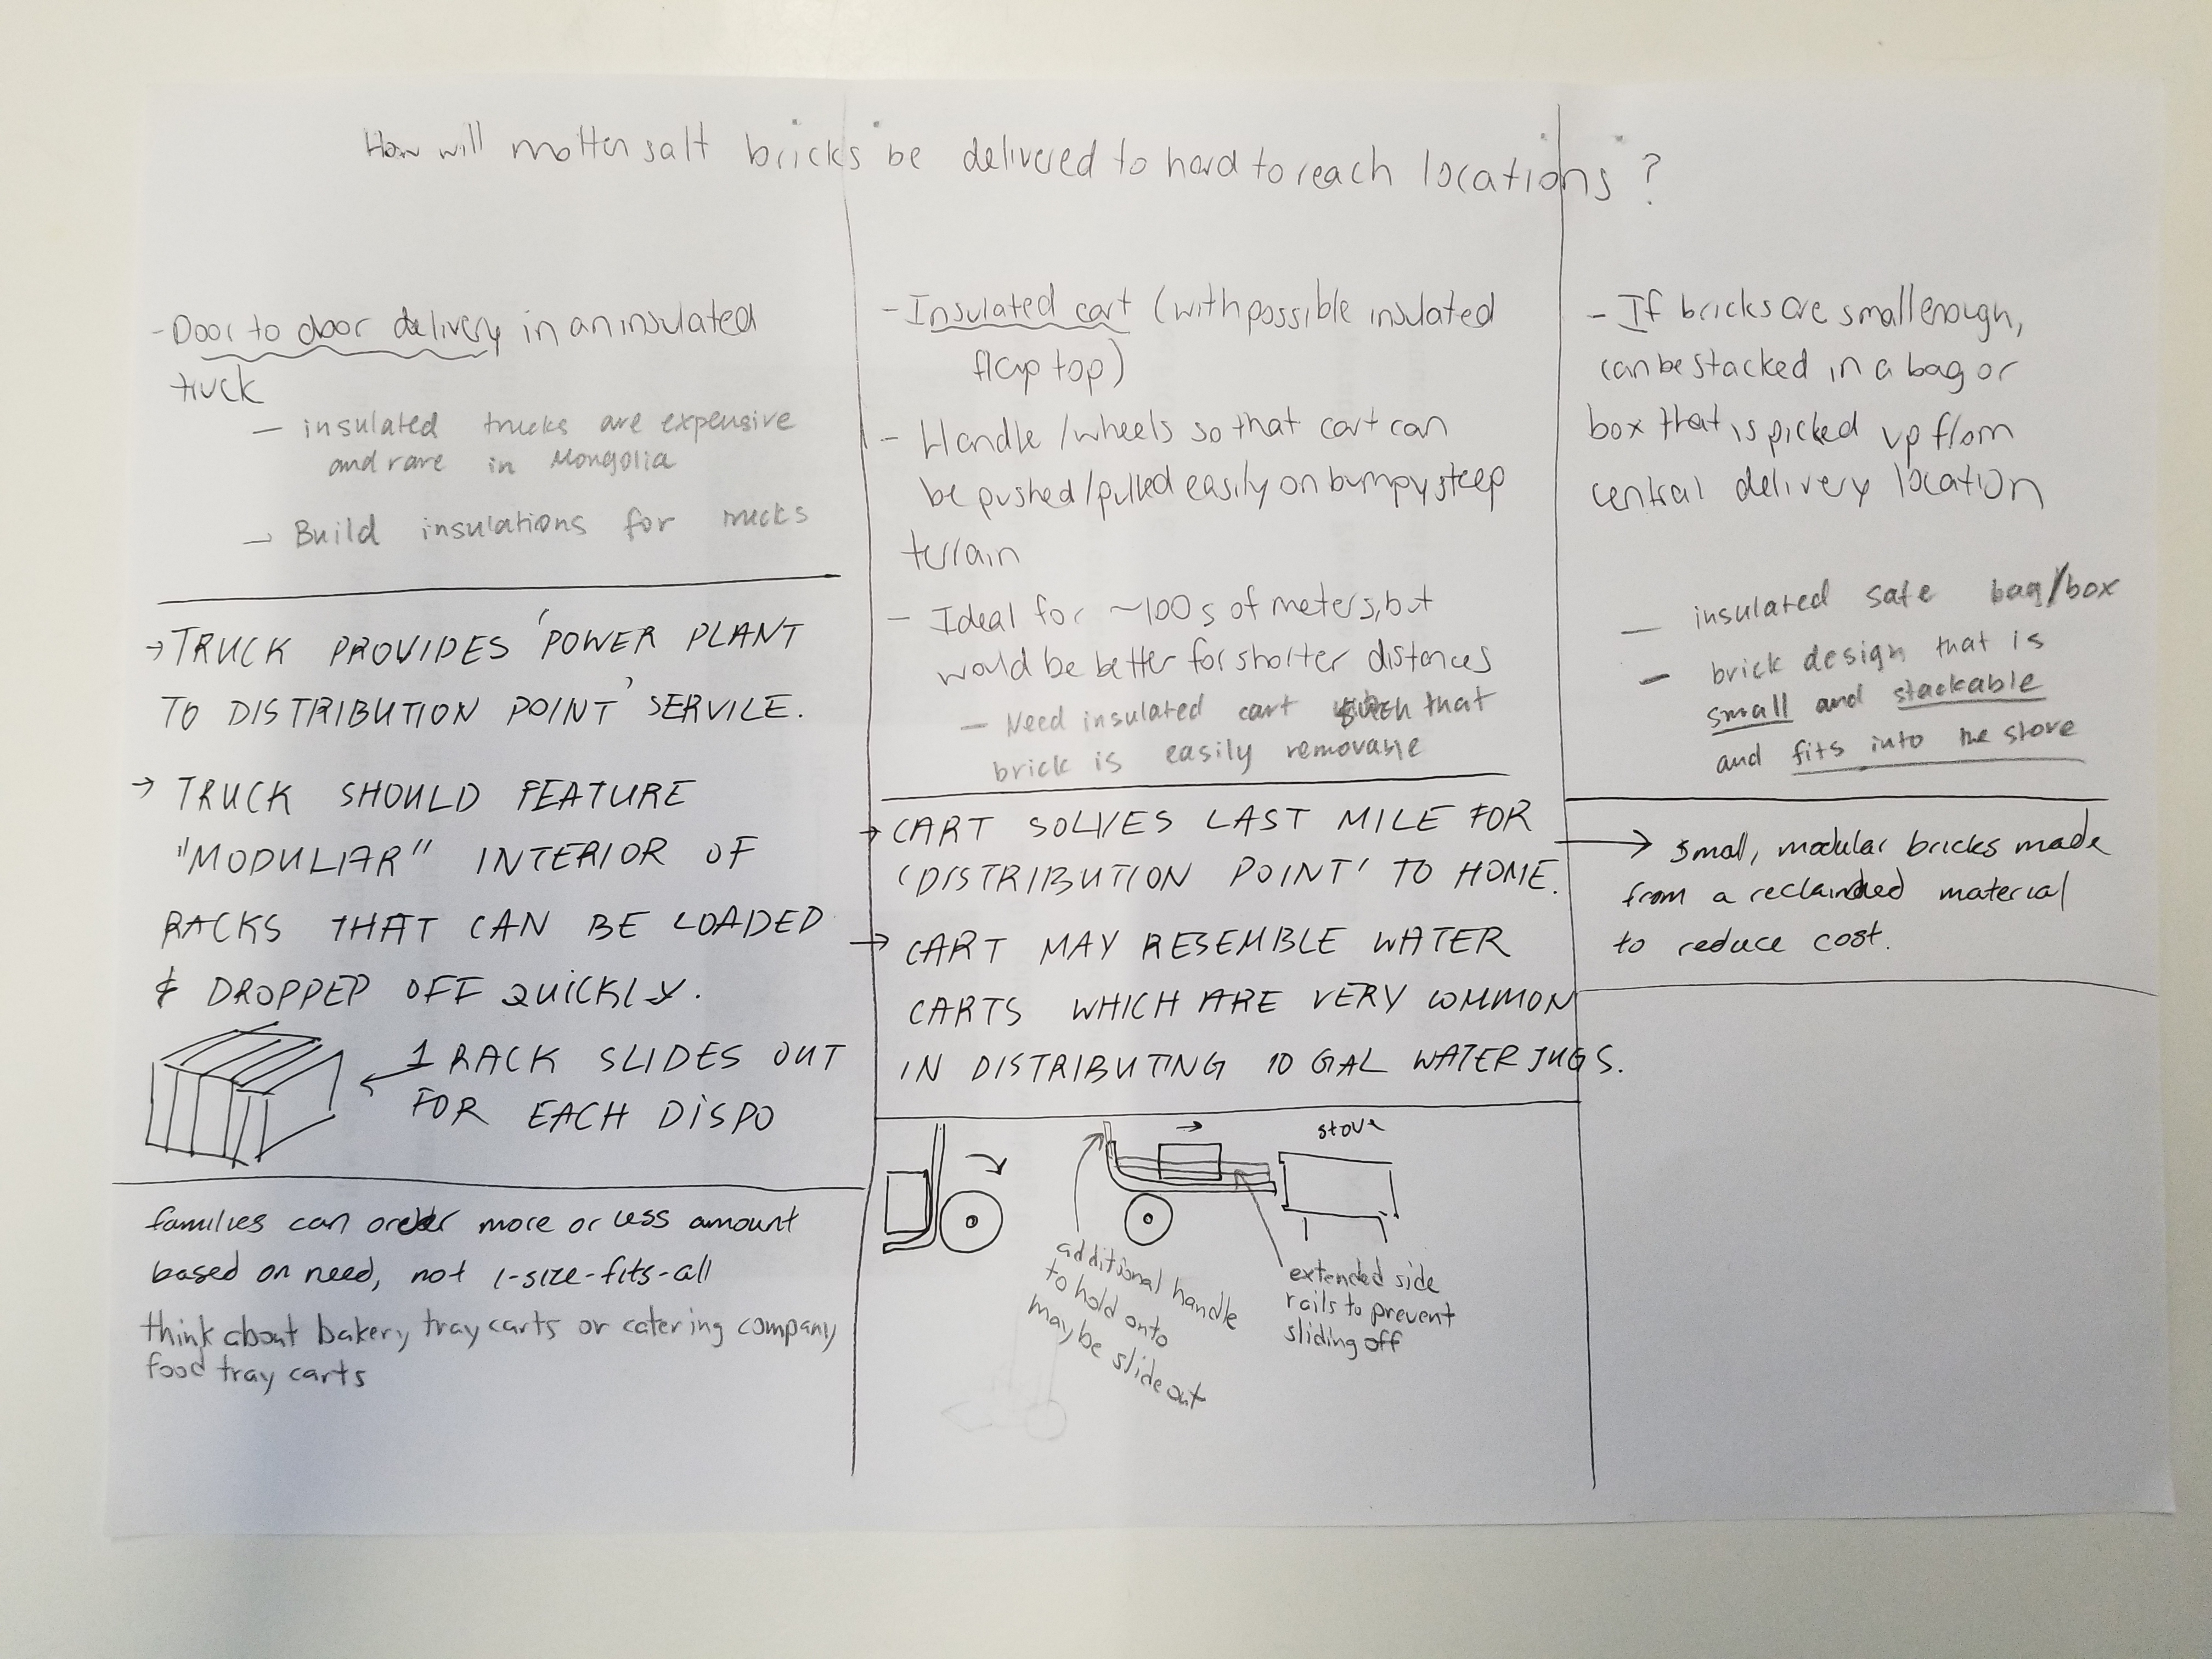 How will molten salt bricks be delivered to hard to reach locations ?
- Door to door delivery in an insulated
truck
— insulated trucks are expensive
and rare in Mongolia
→ Build insulations for trucks
→ TRUCK PROVIDES 'POWER PLANT
TO DISTRIBUTION POINT' SERVICE.
→ TRUCK SHOULD FEATURE
"MODULAR" INTERIOR OF
RACKS THAT CAN BE LOADED
& DROPPED OFF QUICKLY.
← 1 RACK SLIDES OUT
FOR EACH DISPO
families can order more or less amount
based on need, not 1-size-fits-all
think about bakery tray carts or catering company
food tray carts
- Insulated cart (with possible insulated
flap top)
- Handle/wheels so that cart can
be pushed/pulled easily on bumpy steep
terrain
- Ideal for ~100s of meters, but
would be better for shorter distances
— Need insulated cart such that
brick is easily removable
→ CART SOLVES LAST MILE FOR
'DISTRIBUTION POINT' TO HOME.
→ CART MAY RESEMBLE WATER
CARTS WHICH ARE VERY COMMON
IN DISTRIBUTING 10 GAL WATER JUGS.
stove
additional handle
to hold onto
maybe slide out
extended side
rails to prevent
sliding off
- If bricks are small enough,
can be stacked in a bag or
box that is picked up from
central delivery location
— insulated safe bag/box
— brick design that is
small and stackable
and fits into the stove
→ small, modular bricks made
from a reclaimed material
to reduce cost.